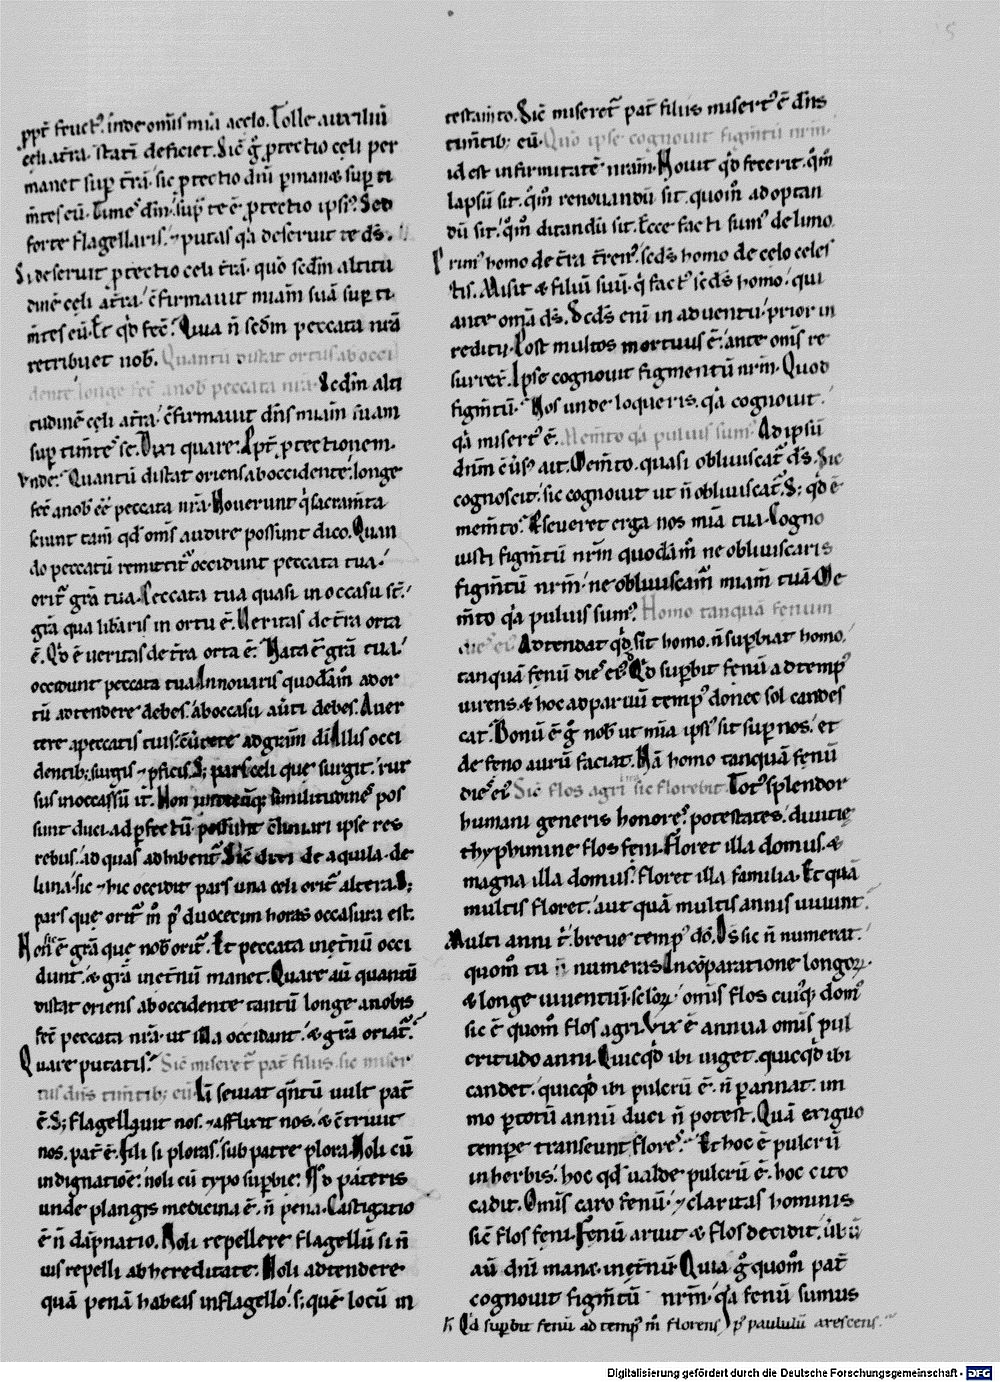 ppt̄ fruct⁹. inde om̄is mīa a celo. Tolle auxiliū
cęli at̄ra. statī deficiet. Sic̄ g̊ ptectio cęli per
manet sup t̄rā. sic ptectio dn̄i pmanet sup ti
m̄tes eū. Times dn̄m. sup te ē ptectio ipsi⁹. Sed
forte flagellaris. ⁊ putas q̄a deseruit te dš.
Si deseruit ptectio celi t̄rā. quō scd̄m altitu
dinē cęli at̄ra. cfirmauit miam suā sup ti
m̄tes eū. Et qd̄ fec̄. Quia n̄ scd̄m peccata nr̄a
retribuet nob̄. Quantū distat ortus ab occi
dente longe fec̄ a nob̄ peccata nr̄a. Scd̄m alti
tudinē cęli at̄ra. cfirmauit dn̄s miam suam
sup timētes se. Dixi quare. Ppt̄ ptectionem.
Vnde. Quantū distat oriens ab occidente. longe
fec̄ a nob̄ ēē peccata nr̄a. Nouerunt q̄ sacram̄ta
sciunt tam̄ qd̄ om̄s audire possunt dico. Quan
do peccatū remittit̄ occidunt peccata tua.
orit̄ gr̄a tua. Peccata tua quasi in occasu st̄.
gr̄a qua lib̄aris in ortu ē. Veritas de t̄ra orta
ē. Qd̄ ē ueritas de t̄ra orta ē. Nata ē gr̄a tua.
occidunt peccata tua. Innouaris quodā m̄. ad or
tū adtendere debes. ab occasu auti debes. Auer
tere a peccatis tuis. cūtere ad gr̄am di. Illis occi
dentib; surgis ⁊ pficis. S; pars celi que surgit. rur
sus in occassū it̄. Non similitudines pos
sunt duci. ad pfectū possunt ipse res
rebus. ad quas adhibent̄. Sic̄ dixi de aquila. de
luna. sic ⁊ hic occidit pars una celi orit̄ altera. S;
pars que orit̄ m̄ p⁹ duodecim horas occasura est.
Non sic ē gr̄a que nob̄ orit̄. Et peccata inet̄nū occi
dunt. et gr̄a inet̄nū manet. Quare aū quantū
distat oriens ab occidente tantū longe a nobis
fec̄ peccata nr̄a. ut illa occidant. et gr̄a oriat̄.
Quare putatis. Sic̄ miseret̄ pat̄ filiis. sic miser
tus dn̄s tim̄tib; eū. Li seuiat qn̄tū uult pat̄
ē. S; flagellauit nos. ⁊ afflixit nos. et ctriuit
nos. pat̄ ē. Fili si ploras. sub patre plora. Noli cū
indignatiōe. noli cū typo supbie. Qd̄ pateris
unde plangis medicina ē. n̄ pena. Castigatio
ē n̄ dāpnatio. Noli repellere flagellū si n̄
uis repelli ab hereditate. Noli adtendere
quā penā habeas in flagello. s; quē locū in
testam̄to. Sic̄ miseret̄ pat̄ filiis misert⁹ ē dn̄s
tim̄tib; eū. Quō ipse cognouit figm̄tū nr̄m.
id est infirmitatē nr̄am. Nouit qd̄ fecerit. qm̊
lapsū sit. qm̊ renouandū sit. quom̊ adoptan
dū sit. qm̊ ditandū sit. Ecce facti sum⁹ de limo.
Prim⁹ homo de t̄ra t̄ren⁹. scds̄ homo de celo celes
tis. Misit et filiū suū. q̄ fact⁹ scds̄ homo. qui
ante om̄a dš. Scds̄ eni in aduentu. prior in
reditu. Post multos mortuus ē. ante om̄s re
surrex̄. Ipse cognouit figmentū nr̄m. Quod
figm̄tū. Nos unde loqueris. q̄a cognouit.
q̄a misert⁹ ē. Mem̄to q̄a puluis sum⁹. Ad ipsū
dn̄m cūs⁹ ait. Mem̄to. quasi obliuiscat̄ dš. Sic
cognoscit. sic cognouit ut n̄ obliuiscat̄. S; qd̄ ē
mem̄to. Pseueret erga nos mīa tua. Cogno
uisti figm̄tū nr̄m quodām̊ ne obliuiscaris
figm̄tū nr̄m. ne obliuiscam̄ miam̄ tuā. Me
m̄to q̄a puluis sum⁹. Homo tanquā fenum
dies ei⁹. Adtendat qd̄ sit homo. n̄ supbiat homo.
tanquā fenū dies ei⁹. Qd̄ supbit fenū ad temp⁹
uirens. et hoc ad paruū temp⁹ donec sol candes
cat. Bonū ē g̊ nob̄ ut mīa ipsi⁹ sit sup nos. et
de feno aurū faciat. Nā homo tanquā fenū
dies ei⁹. Sic̄ flos agri ita sic florebit. Tot⁹ splendor
humani generis honores. potestates. diuitię
thyphi minę flos feni. Floret illa domus. et
magna illa domus. floret illa familia. Et quā
multis floret. aut quā multis annis uiuunt.
Multi anni t̄. breue temp⁹ dō. Dš sic n̄ numerat.
quom̊ tu n̄ numeras. Incōparatione longoꝝ.
et longe uiuentiū sc̄loꝝ. omīs flos cui⁹q; dom⁹
sic ē quom̊ flos agri. Vix ē annua omīs pul
critudo anni. Quicqd̄ ibi uiget. quicqd̄ ibi
candet. quicqd̄ ibi pulcrū ē. n̄ pannat. im
mo p totū annū duci n̄ potest. Quā exiguo
tempe transeunt flores. Et hoc ē pulcrū
in herbis. hoc qd̄ ualde pulcrū ē. hoc cito
cadit. Omīs caro fenū. ⁊ claritas hominis
sic̄ flos feni. Fenū aruit et flos decidit. uerbū
aū dn̄i manet inet̄nū. Quia g̊ quom̊ pat̄
cognouit figm̄tū nr̄m. q̄a fenū sumus
Qd̄ supbit fenū ad temp⁹ m̄ florens p⁹ paululū arescens.
Digitalisierung gefördert durch die Deutsche Forschungsgemeinschaft - DFG